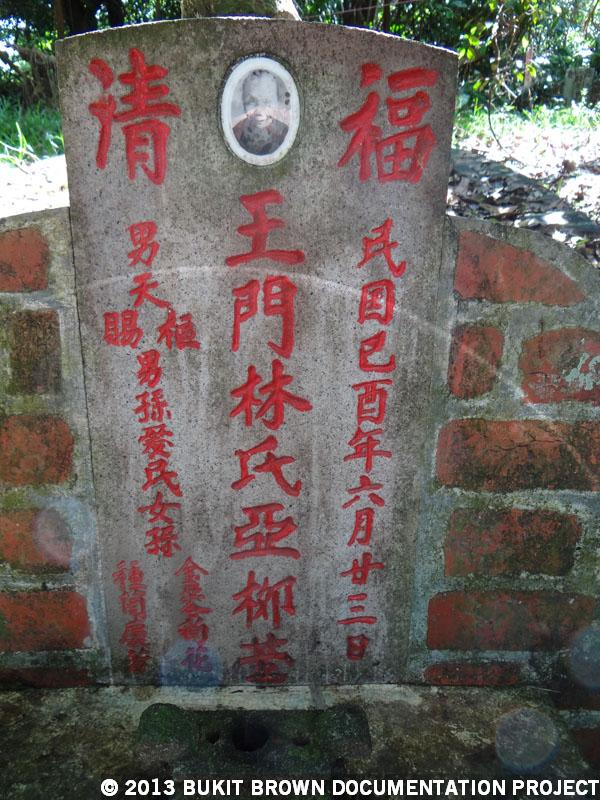 福清
民国己酉年六月廿三日
王門林氏亞柳塋
男天
樞賜
男孫愛民女孫
© 2013 BUKIT BROWN DOCUMENTATION PROJECT